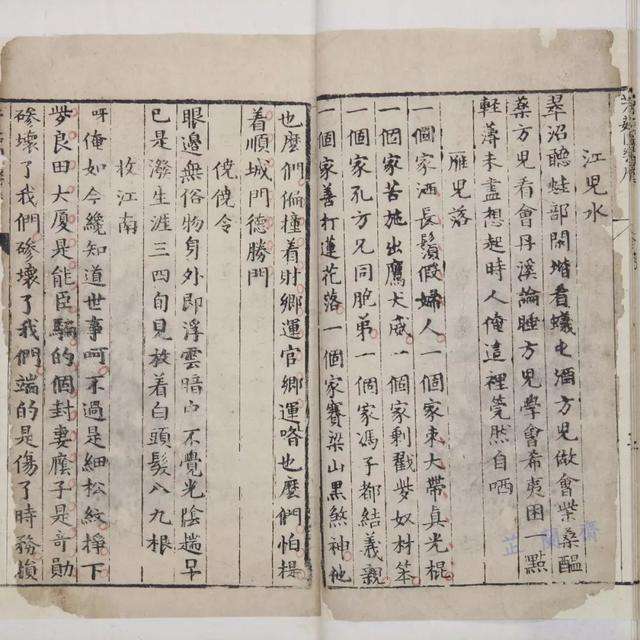 江兒水
翠沼聽蛙部閑堦看蟻屯酒方兒做會柴桑醞
藥方兒看會丹溪論睡方兒學會希夷困一點
輕薄未盡想起時人俺這裡筦然自哂
雁兒落
一個家洒長鬚假婦人一個家束大帶真光棍
一個家苦施出鷹犬威一個家剩戳奴材笨
一個家孔方兄同胞弟一個家馮子都結義親
一個家善打蓮花落一個家賽梁山黑煞神他
也麼們偏撞着財鄉運官鄉運咯也麼們怕提
着順城門德勝門
僥僥令
眼邊無俗物身外即浮雲暗中不覺光陰趲早
已是潑生涯三四旬見放着白頭髮八九根
收江南
呀俺如今纔知道世事呵不過是細松紋掙下
良田大厦是能臣騙的個封妻廕子是奇勛
磣壞了我們磣壞了我們端的是傷了時務損